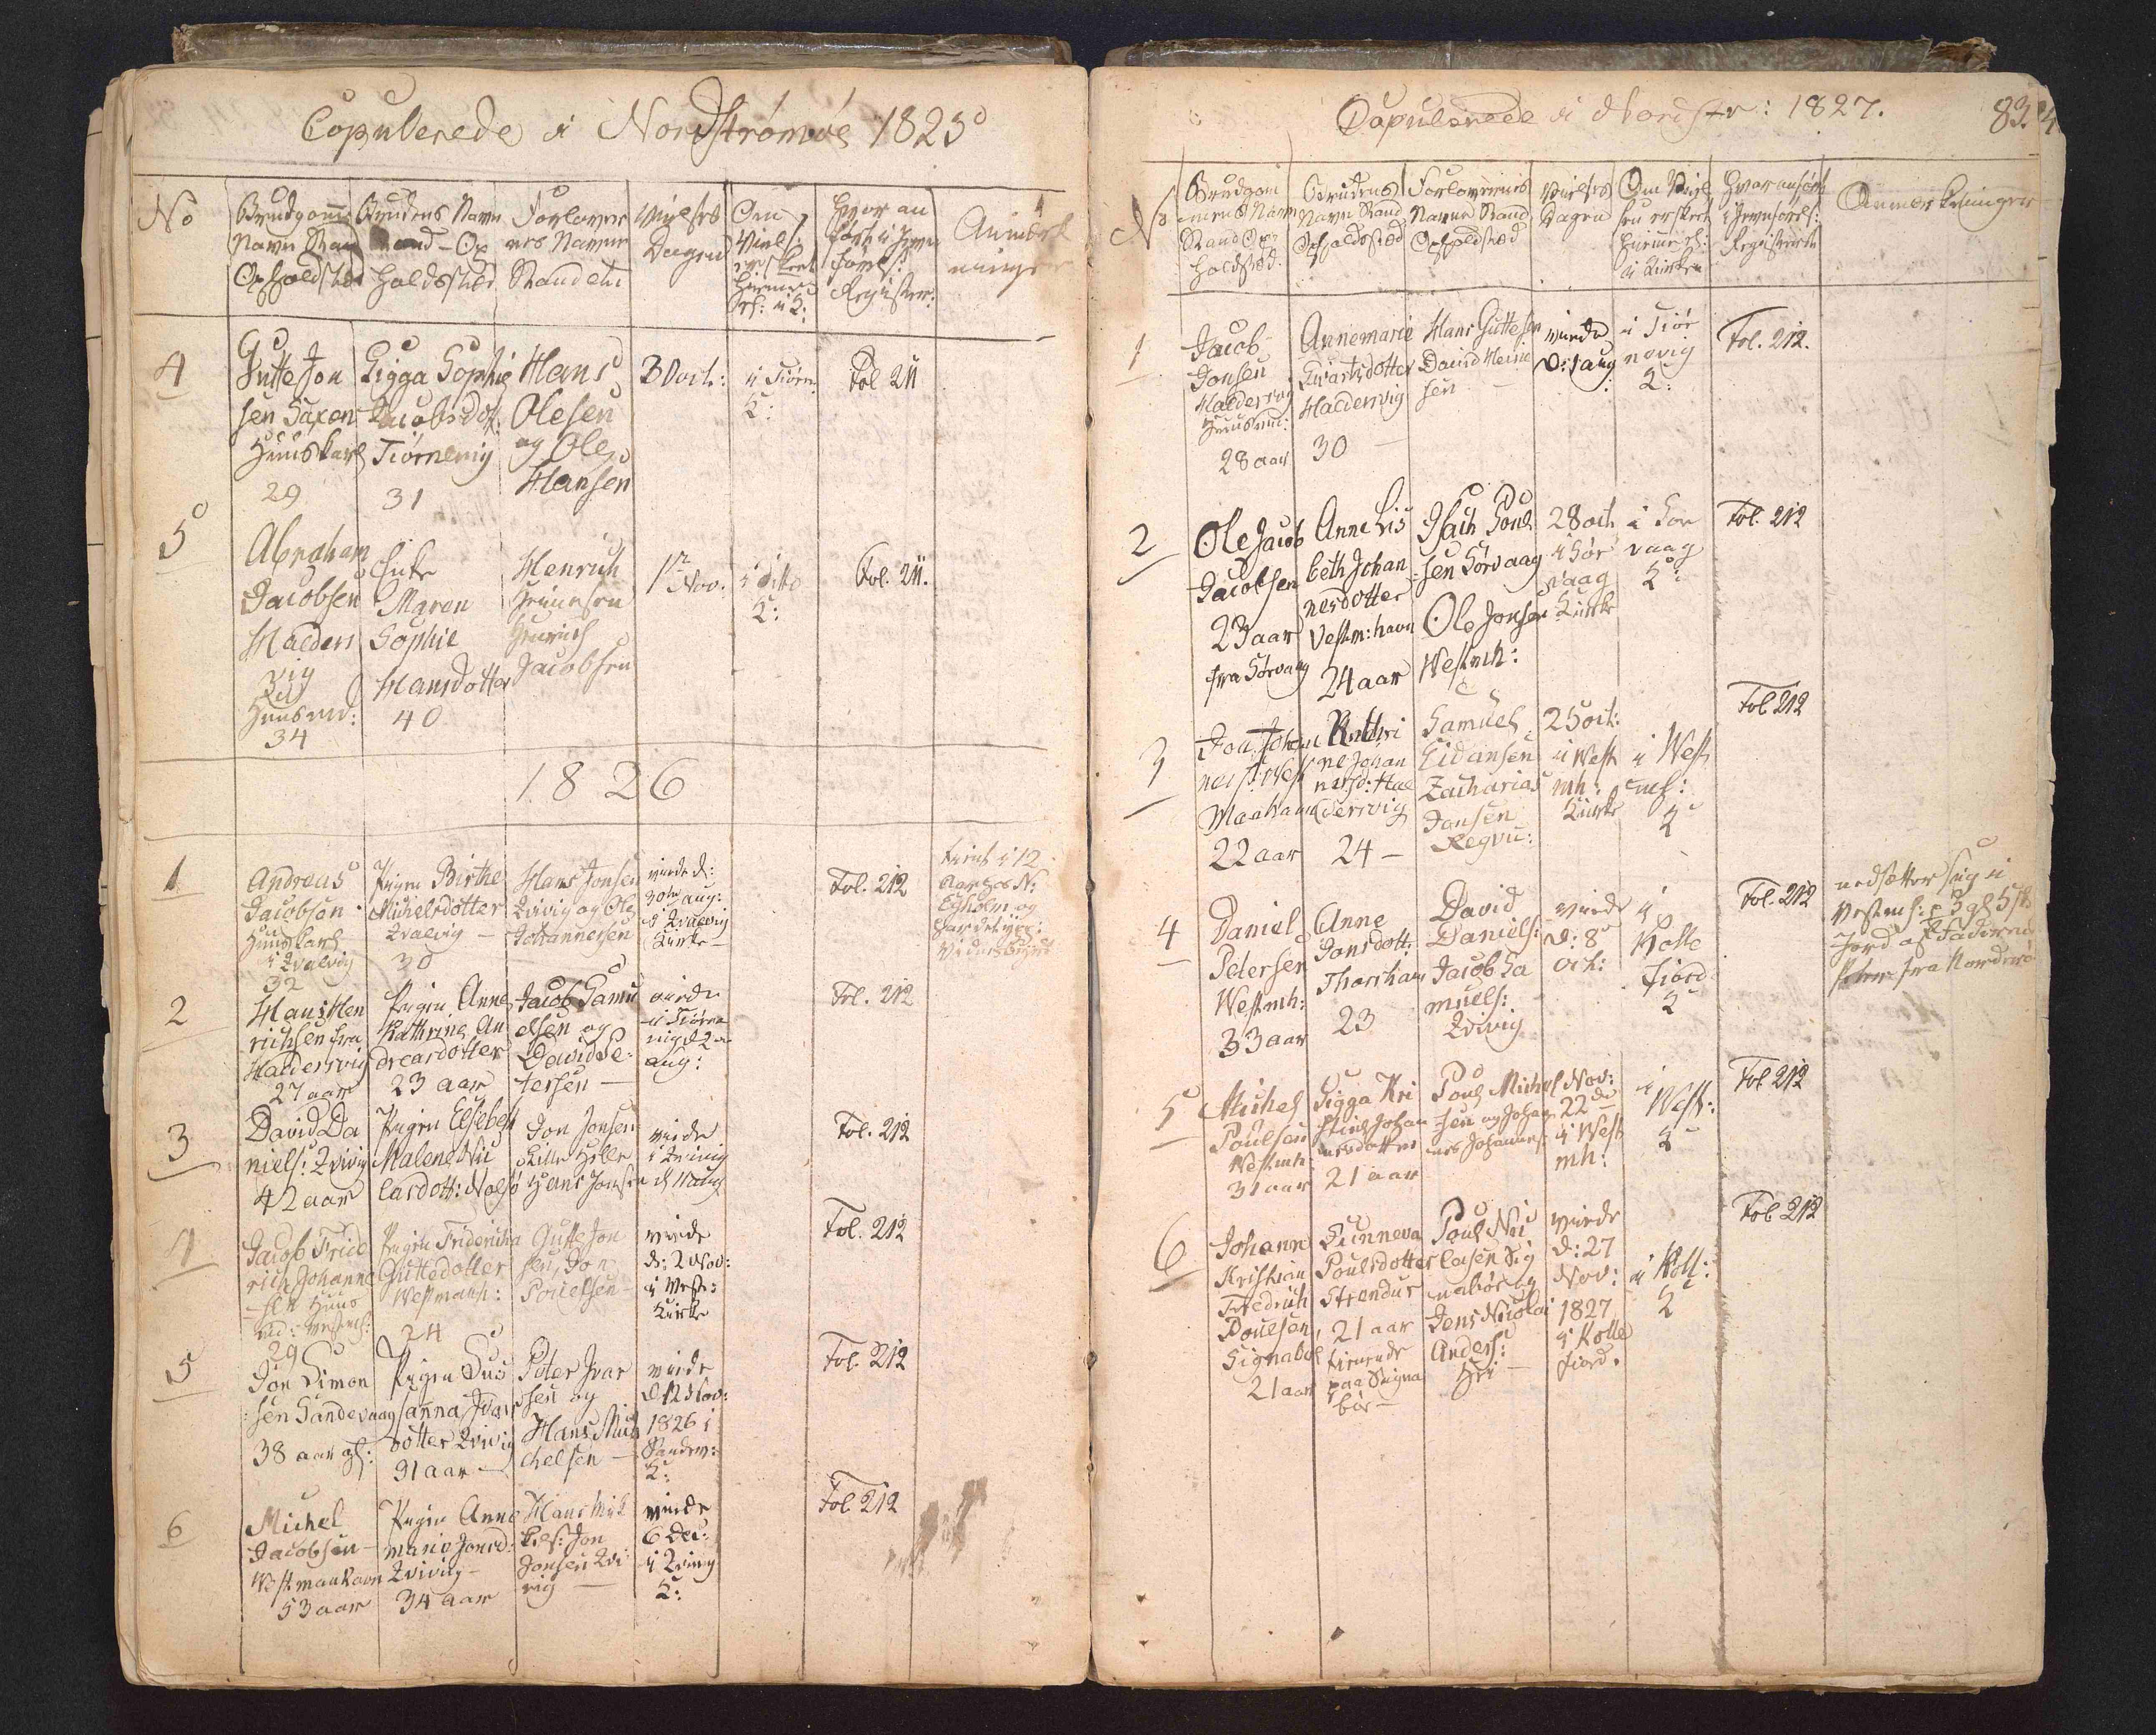 Copulerede i Nordstrømøe 1825
No
Brudgommens
Navn Stand
Opholdsted
Brudens Navn
Stand - Op
holdssted
Forlover
nes Navne
Stand etc
Vielses
Dagen
Om
Viels:
er skeet
hiemme
ell: i K:
Hvor an
ført i Jevn
førels:
Register:
Anmærk
ninger
4
Gutte Jon
sen Saxen
Huuskarl
29
Sigga Sophie
Jacobsdot:
Tiørnevig
31
Hans
Olesen
og Ole
Hansen
30 oct:
i Tiørn:
K:
Fol 211
5
Abraham
Jacobsen
Halders
vig
Huusmd:
34
Enke
Maren
Sophie
Hansdotter
40
Henrich
Heinesen
Henrich
Jacobsen
1 Nov:
i dito
K:
Fol. 211.
1826
1
Andreas
Jacobsen
Huuskarl
i Qvalvig
32
Pigen Birthe
Michelsdotter
Qvalvig -
30
Hans Jonsen
Qvivig og Ole
Johannesen
viede d:
30te aug:
i Qvalvig
Kirke -
Fol. 212
tient i 12
Aar hos N:
Egholm og
2
Hans Hen
richsen fra
Haldersvig
27 aar
Pigen Anne
Kathrine An
dreasdotter
23 aar
Jacob Samu
elsen og
David Pe-
tersen -
viede
i Tiørne
vig d 2
aug:
Fol. 212
3
David Da
niels: Qvivig
42 aar
Pigen Elsebeth
Malene Nic
lasdott: Nolsø
Jon Jonsen
Lille Helle
Hans Jonsen
viede
i Qvivig
Fol. 212
4
Jacob Frid
rich Johanne
sen Huus
md: Vestmh:
29
Pigen Fridericha
Guttedotter
Westmanh:
24
Gutte Jon
sen, Jon
Poulsen -
viede
d: 2 Nov:
i Vestm:
Kirke
Fol. 212
5
Jon Simon
sen Sandevaag
38 aar gl:
Pigen Sus
sanna Ivars
dotter Qvivig
31 aar -
Peter Ivar
sen og
Hans Mi
chelsen -
viede
d 12 Nov:
1826 i
Sandev:
K:
Fol. 212
6
Michel
Jacobsen -
Westmanhavn
53 aar
Pigen Anne
Marie Jonsd:
Qvivig -
34 aar
Hans Mik
kels: Jon
Jonsen Qvi
vig -
viede
6 Dec:
i Qvivig
K:
Fol. 212
Copulerede i Nordstr: 1827.
83.
No
Brudgom
mens Navn
Stand Op-
holdsted.
Brudens
Navn Stand
Opholdssted
Forlovernes
Navne Stand
Opholdsted
Vielses
Dagen
Om Viel
sen er skeet
hiemme ell:
i Kirken
Hvor anført
i Jevnførels:
Registeret
Anmærkninger
1
Jacob
Jonsen
Haldersvig
Huusmd:
28 aar
Annemarie
Evartsdotter
Haldersvig
30 -
Hans Guttesen
David Heine
sen -
viede
d: 1 aug
i Tiør
nevig
K:
Fol. 212.
2
Ole Jacob
Jacobsen
23 aar
fra Sørvaag
Anne Lis
beth Johan
nesdotter
Vestm: havn
24 aar
Isach Poul
sen Sørvaag
Ole Jonsen
Westmh:
28 oct
i Sør
vaag
Kirke
i Sør
vaag
K:
Fol. 212
3
Jon Johan
nes: West
manhavn
22 aar
Kathri
ne Johan
nesd: Hal
dersvig
24 -
Samuel
Eidansen
Zacharias
Jonsen
25 oct:
i West
mh:
Kirke
i West
mh:
K
Fol 212
4
Daniel
Petersen
Westmh:
33 aar
Anne
Jonsdott:
Thorshavn
23
David
Daniels:
Jacob Sa
muels:
Qvivig
viede
d: 8
oct:
i
Kolle
fiord
K
Fol. 212
nedsætter sig i
Vestmh: p 3 gl 5 sk
Jord af
5
Michel
Poulsen
Westmh:
31 aar
Sigga Kri
stine Johan
nesdotter
21 aar
Poul Michel
sen og Johan
nes Johannes:
Nov:
22de
i West
mh:
i
West:
K
Fol 212
6
Johann
Kristian
Fredrich
Poulsen,
Signabøe
21 aar
Sunneva
Poulsdotter
Strendur
21 aar
tienende
paa Signa
bøe -
Poul Nic
lasen Sig
nabøe og
Jens Nicolai
Anders:
viede
d: 27
Nov:
1827
i Kolle
fiord.
i Koll:
K
Fol 212